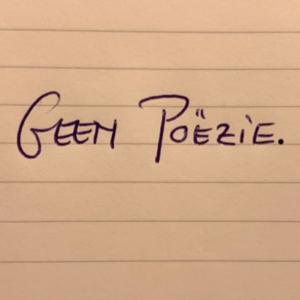 GEEN POËZIE.